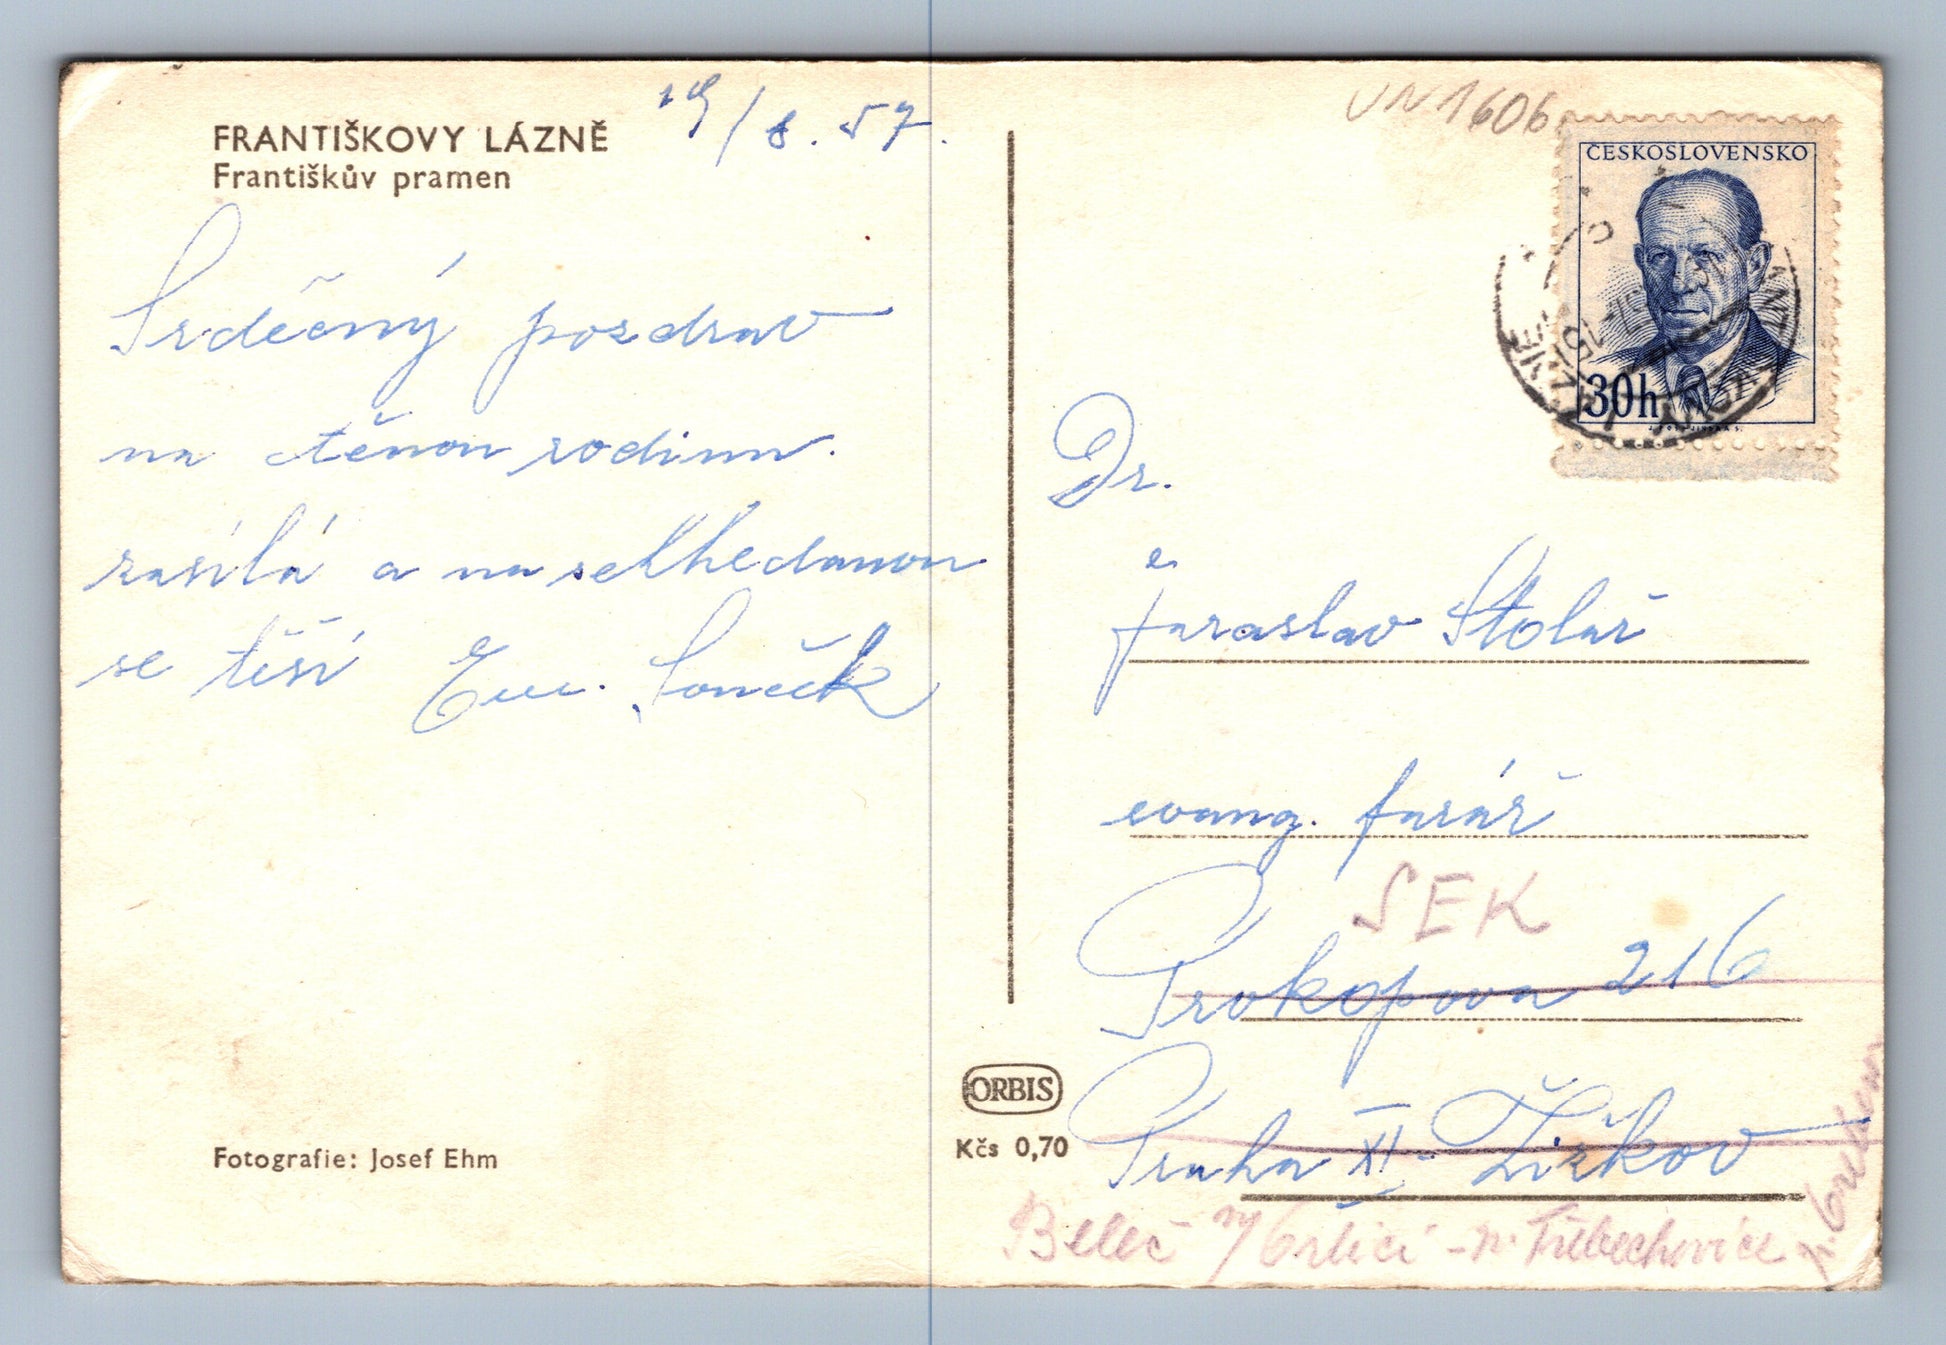 FRANTIŠKOVY LÁZNĚ
Františkův pramen
19/8. 57.
Srdečný pozdrav
na ctěnou rodinu
zasílá a na shledanou
se těší
UN1606
ČESKOSLOVENSKO
30h
Dr.
Jaroslav Stolař
evang. farář
SEK
Prokopova 216
Praha XI - Žižkov
Beleč n/Orlicí - p. Třebechovice
ORBIS
Kčs 0,70
Fotografie: Josef Ehm